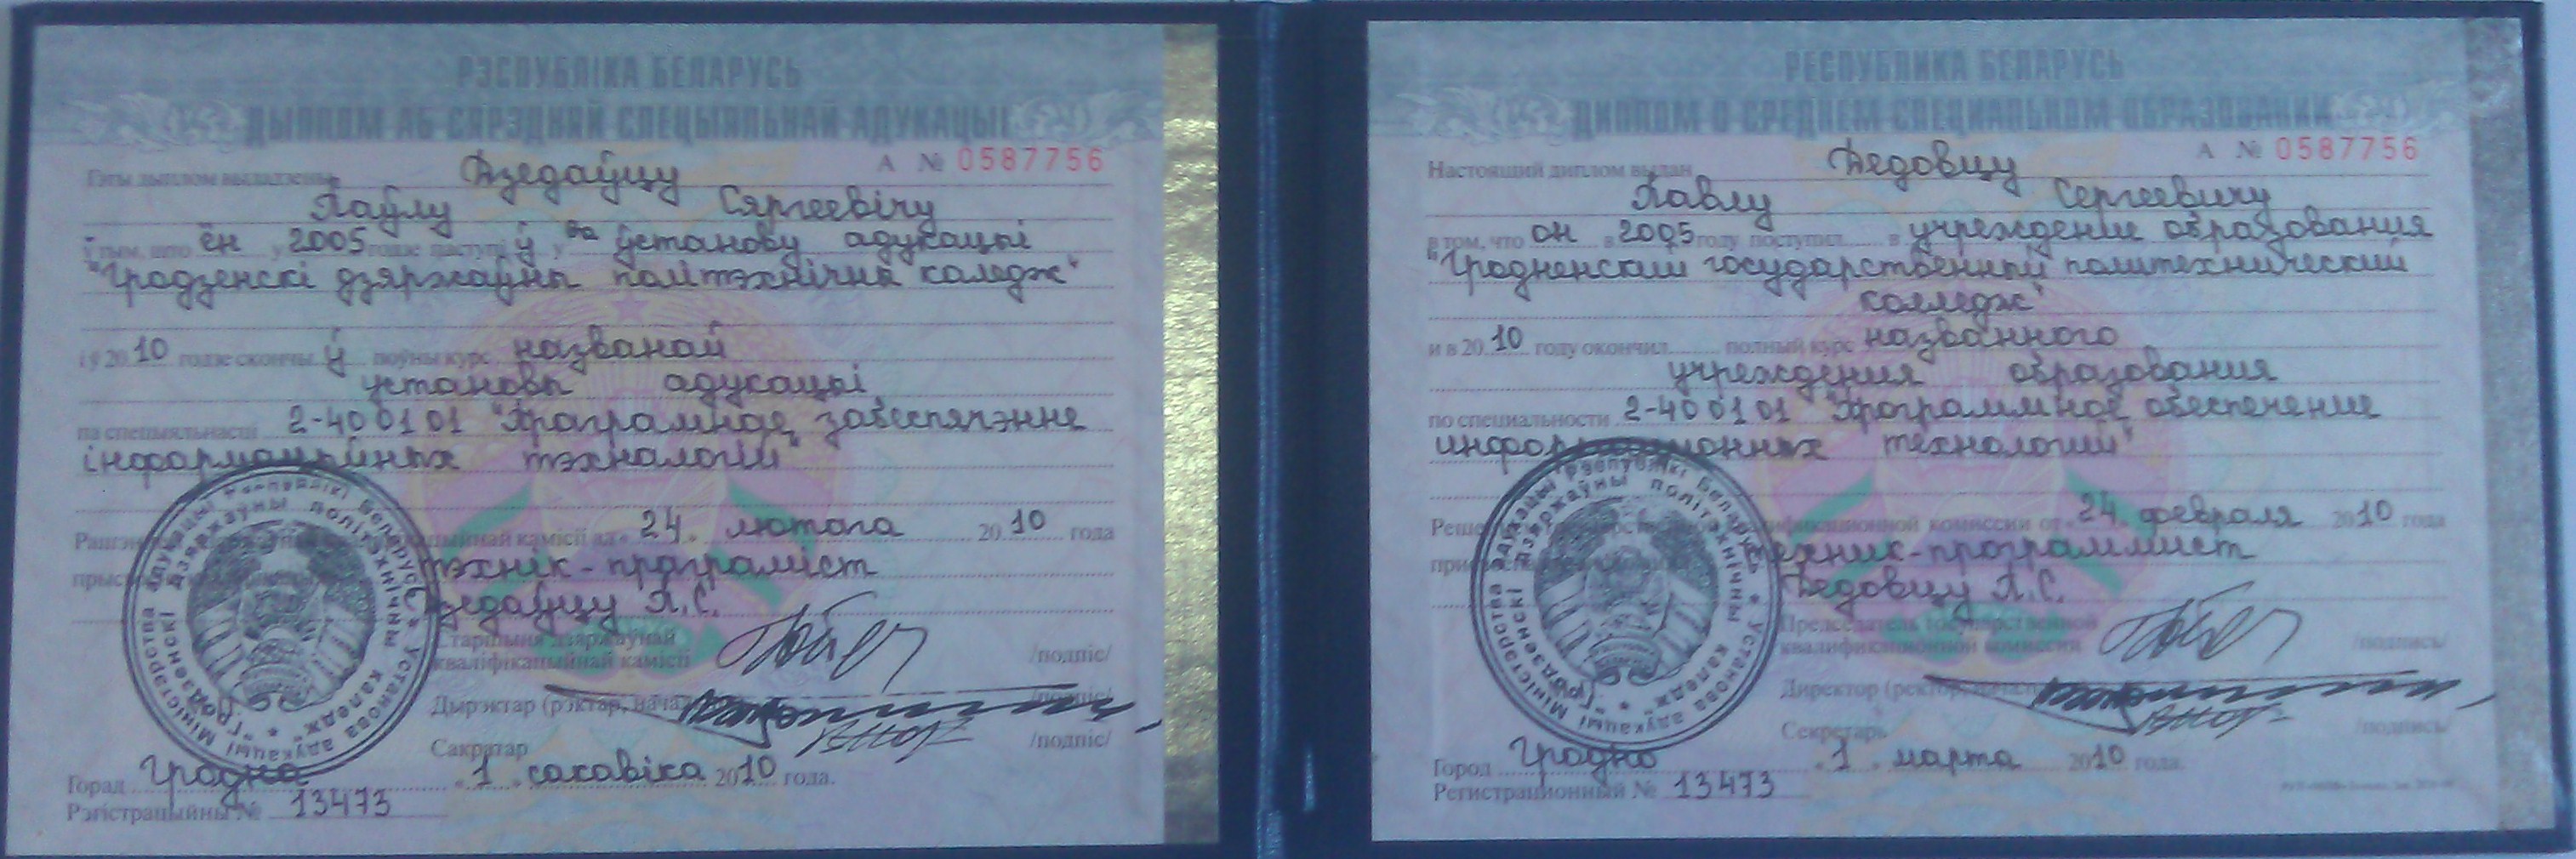 РЭСПУБЛІКА БЕЛАРУСЬ
ДЫПЛОМ АБ СЯРЭДНЯЙ СПЕЦЫЯЛЬНАЙ АДУКАЦЫІ
А № 0587756
Гэты дыплом выдадзены Дзедаўцу
Паўлу Сяргеевічу
ў тым, што ён у 2005 годзе паступіў у ва ўстанову адукацыі
"Гродзенскі дзяржаўны політэхнічны каледж"
і ў 2010 годзе скончыў поўны курс названай
установы адукацыі
па спецыяльнасці 2-40 01 01 "Праграмнае забеспячэнне
інфармацыйных тэхналогій"
24 лютага 2010 года
тэхнік-праграміст
Дзедаўцу П.С.
Старшыня дзяржаўнай
кваліфікацыйнай камісіі /подпіс/
Дырэктар (рэктар, /подпіс/
Сакратар /подпіс/
Горад Гродна "1" сакавіка 2010 года.
Рэгістрацыйны № 13473
Міністэрства адукацыі Рэспублікі Беларусь * Установа адукацыі *
"Гродзенскі дзяржаўны політэхнічны каледж" *
РЕСПУБЛИКА БЕЛАРУСЬ
ДИПЛОМ О СРЕДНЕМ СПЕЦИАЛЬНОМ ОБРАЗОВАНИИ
А № 0587756
Настоящий диплом выдан Дедовцу
Павлу Сергеевичу
в том, что он в 2005 году поступил в учреждение образования
"Гродненский государственный политехнический
колледж"
и в 2010 году окончил полный курс названного
учреждения образования
по специальности 2-40 01 01 "Программное обеспечение
информационных технологий"
квалификационной комиссии от "24" февраля 2010 года
техник-программист
Дедовцу П.С.
Председатель государственной
квалификационной комиссии /подпись/
Директор (ректор,
Секретарь /подпись/
Город Гродно "1" марта 2010 года.
Регистрационный № 13473
Міністэрства адукацыі Рэспублікі Беларусь * Установа адукацыі *
"Гродзенскі дзяржаўны політэхнічны каледж" *